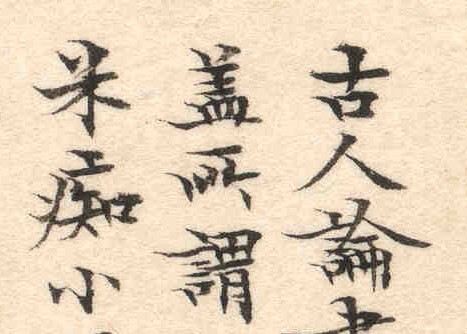 古人論書
盖所謂
米痴小